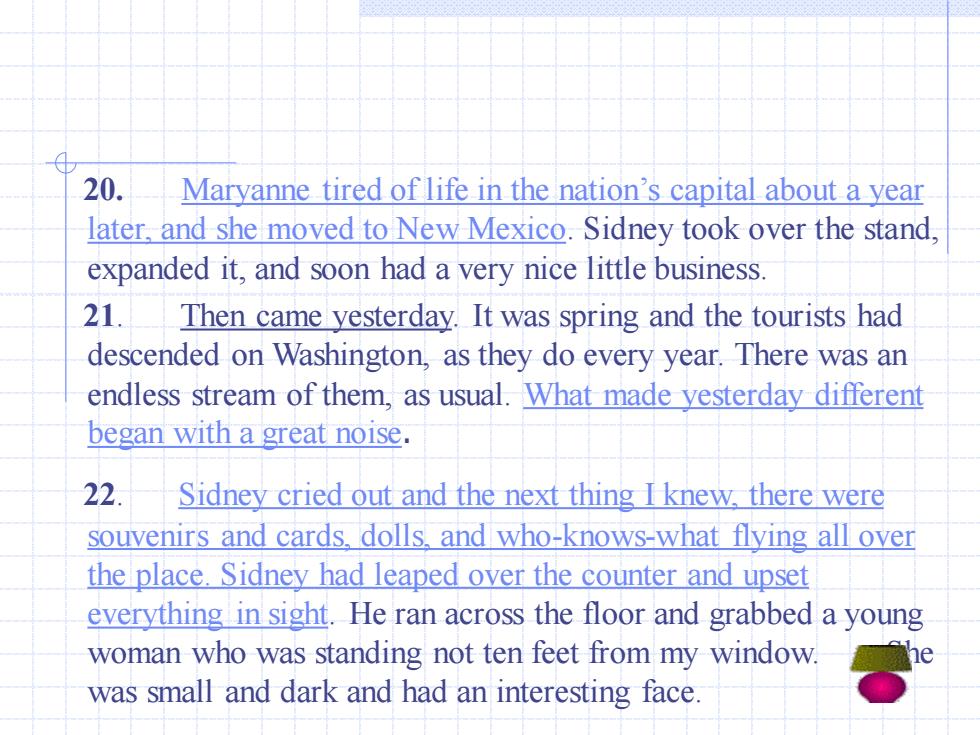 20. Maryanne tired of life in the nation’s capital about a year
later, and she moved to New Mexico. Sidney took over the stand,
expanded it, and soon had a very nice little business.
21. Then came yesterday. It was spring and the tourists had
descended on Washington, as they do every year. There was an
endless stream of them, as usual. What made yesterday different
began with a great noise.
22. Sidney cried out and the next thing I knew, there were
souvenirs and cards, dolls, and who-knows-what flying all over
the place. Sidney had leaped over the counter and upset
everything in sight. He ran across the floor and grabbed a young
woman who was standing not ten feet from my window. She
was small and dark and had an interesting face.